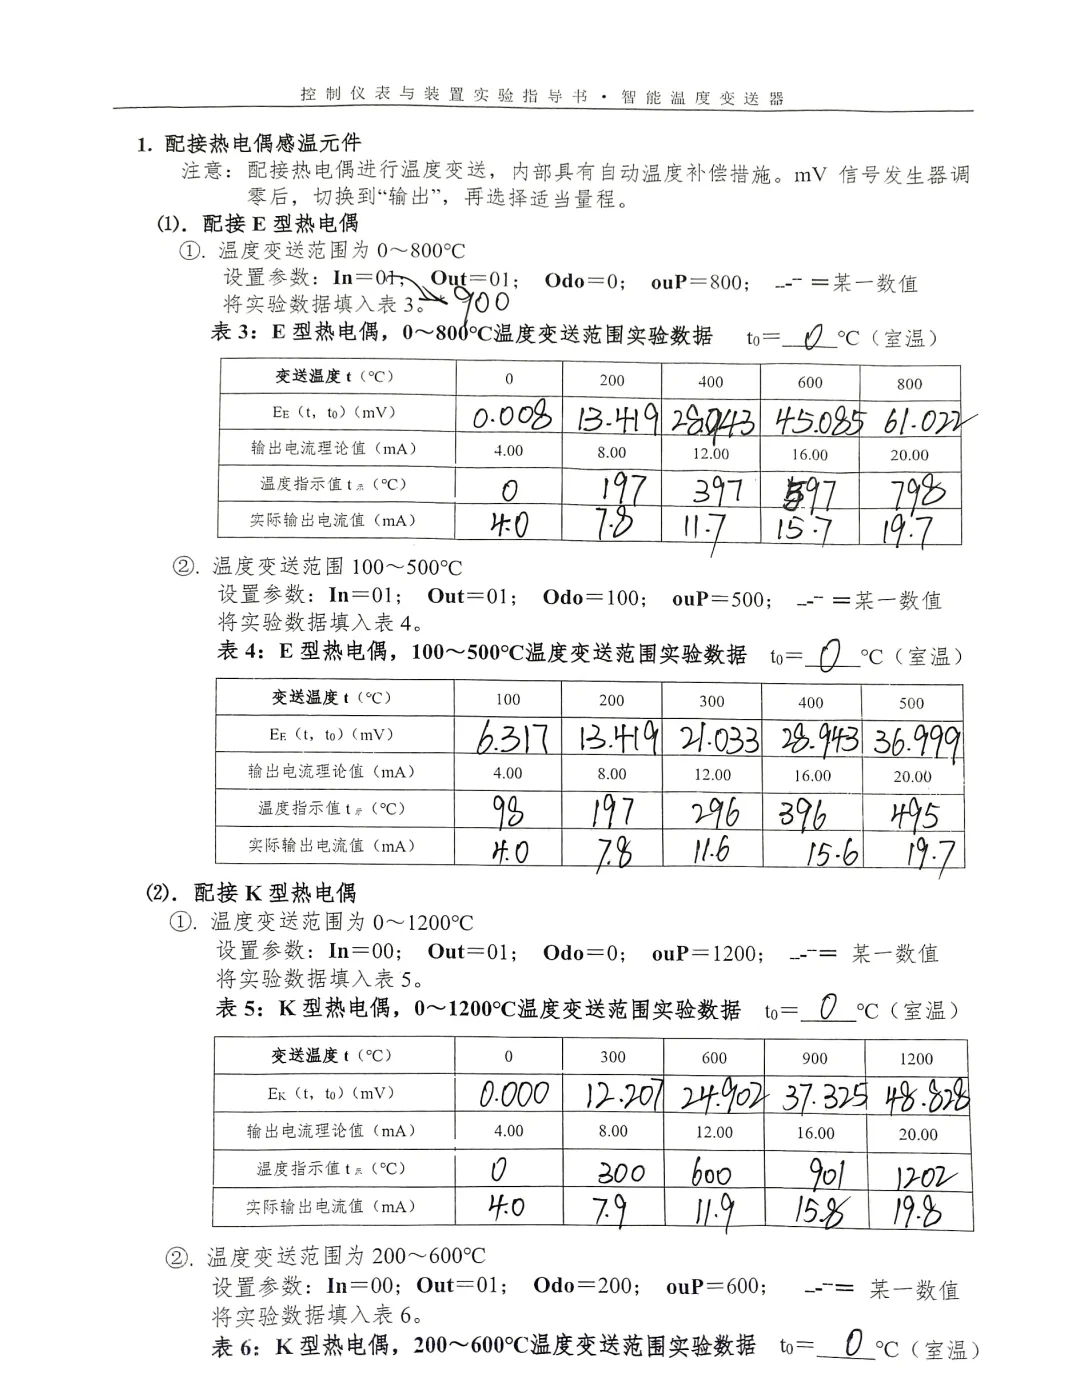 控制仪表与装置实验指导书·智能温度变送器
1. 配接热电偶感温元件
注意：配接热电偶进行温度变送，内部具有自动温度补偿措施。mV 信号发生器调
零后，切换到“输出”，再选择适当量程。
⑴. 配接 E 型热电偶
①. 温度变送范围为 0～800℃
设置参数：In=01; Out=01; Odo=0; ouP=800; --⁻ =某一数值
将实验数据填入表 3。 900
表 3：E 型热电偶，0～800℃温度变送范围实验数据 t₀=0℃（室温）
变送温度 t（℃） 0 200 400 600 800
EE（t，t₀）（mV） 0.008 13.419 28.943 45.085 61.022
输出电流理论值（mA） 4.00 8.00 12.00 16.00 20.00
温度指示值 t示（℃） 0 197 397 597 798
实际输出电流值（mA） 4.0 7.8 11.7 15.7 19.7
②. 温度变送范围 100～500℃
设置参数：In=01; Out=01; Odo=100; ouP=500; --⁻ =某一数值
将实验数据填入表 4。
表 4：E 型热电偶，100～500℃温度变送范围实验数据 t₀=0℃（室温）
变送温度 t（℃） 100 200 300 400 500
EE（t，t₀）（mV） 6.317 13.419 21.033 28.943 36.999
输出电流理论值（mA） 4.00 8.00 12.00 16.00 20.00
温度指示值 t示（℃） 98 197 296 396 495
实际输出电流值（mA） 4.0 7.8 11.6 15.6 19.7
⑵. 配接 K 型热电偶
①. 温度变送范围为 0～1200℃
设置参数：In=00; Out=01; Odo=0; ouP=1200; --⁻= 某一数值
将实验数据填入表 5。
表 5：K 型热电偶，0～1200℃温度变送范围实验数据 t₀=0℃（室温）
变送温度 t（℃） 0 300 600 900 1200
EK（t，t₀）（mV） 0.000 12.207 24.902 37.325 48.828
输出电流理论值（mA） 4.00 8.00 12.00 16.00 20.00
温度指示值 t示（℃） 0 300 600 901 1202
实际输出电流值（mA） 4.0 7.9 11.9 15.8 19.8
②. 温度变送范围为 200～600℃
设置参数：In=00; Out=01; Odo=200; ouP=600; --⁻= 某一数值
将实验数据填入表 6。
表 6：K 型热电偶，200～600℃温度变送范围实验数据 t₀=0℃（室温）